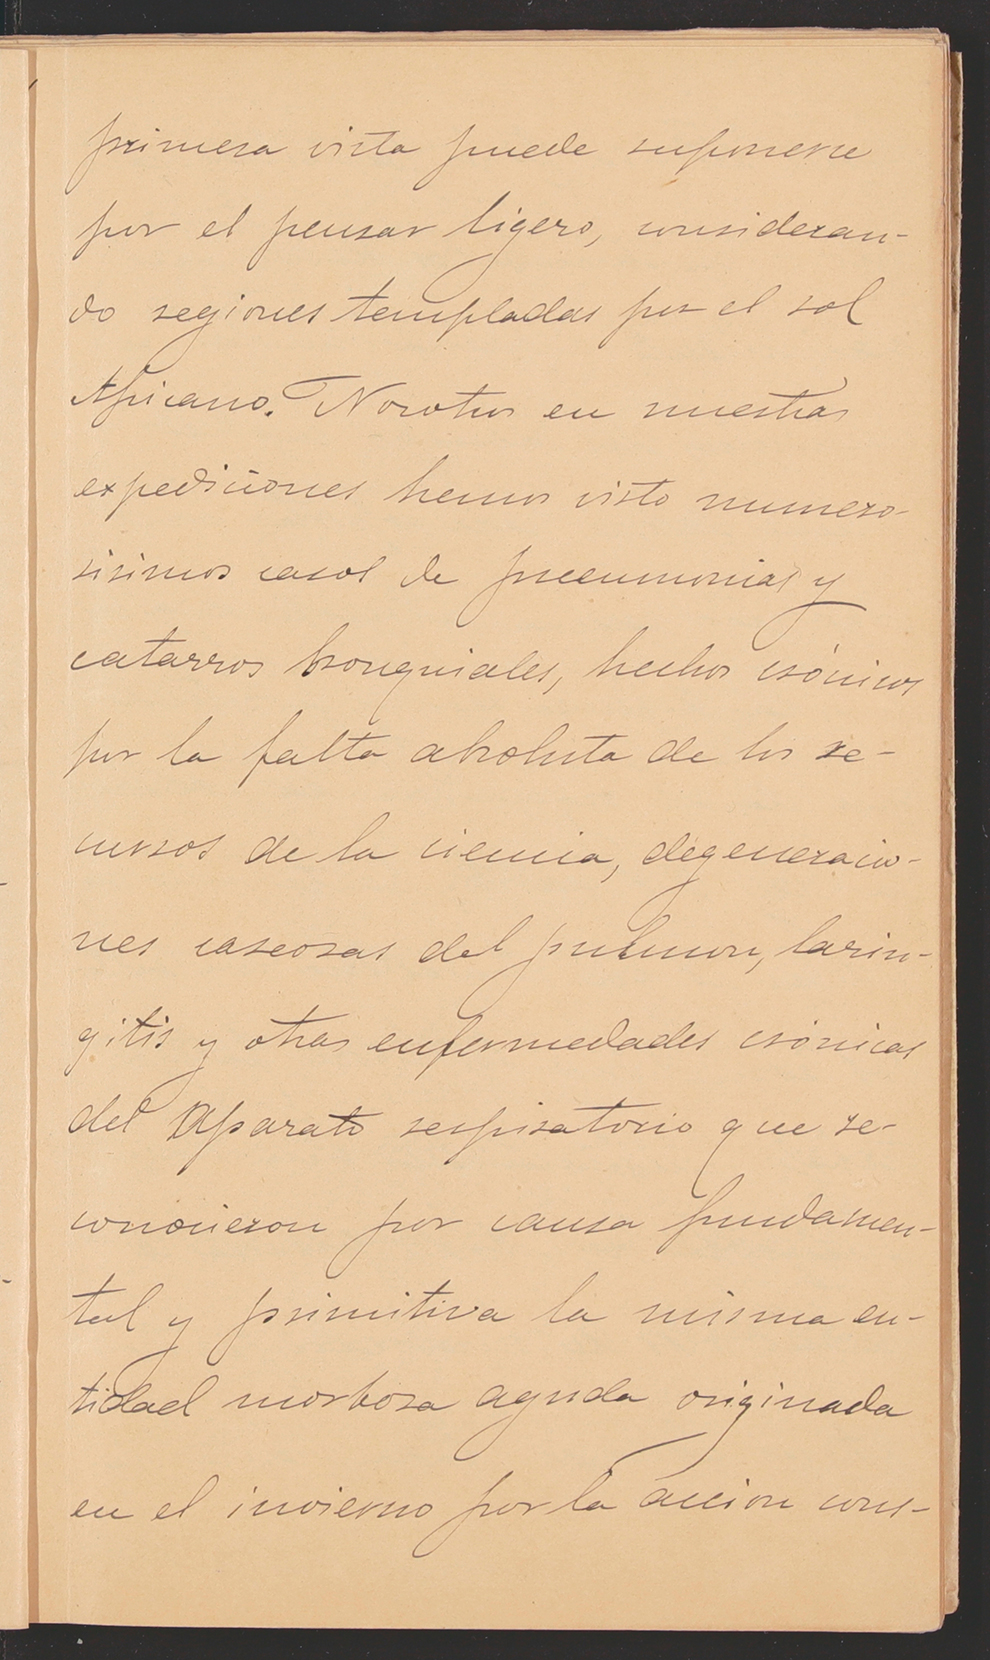 primera vista puede suponerse
por el pensar ligero, consideran-
do regiones templadas por el sol
Africano. Nosotros en nuestras
expediciones hemos visto numero-
sisimos casos de pneumonias y
catarros bronquiales, hechos crónicos
por la falta absoluta de los re-
cursos de la ciencia, degeneracio-
nes caseosas del pulmon, larin-
gitis y otras enfermedades crónicas
del Aparato respiratorio que re-
conocieron por causa fundamen-
tal y primitiva la misma en-
tidad morbosa aguda originada
en el invierno por la accion cons-